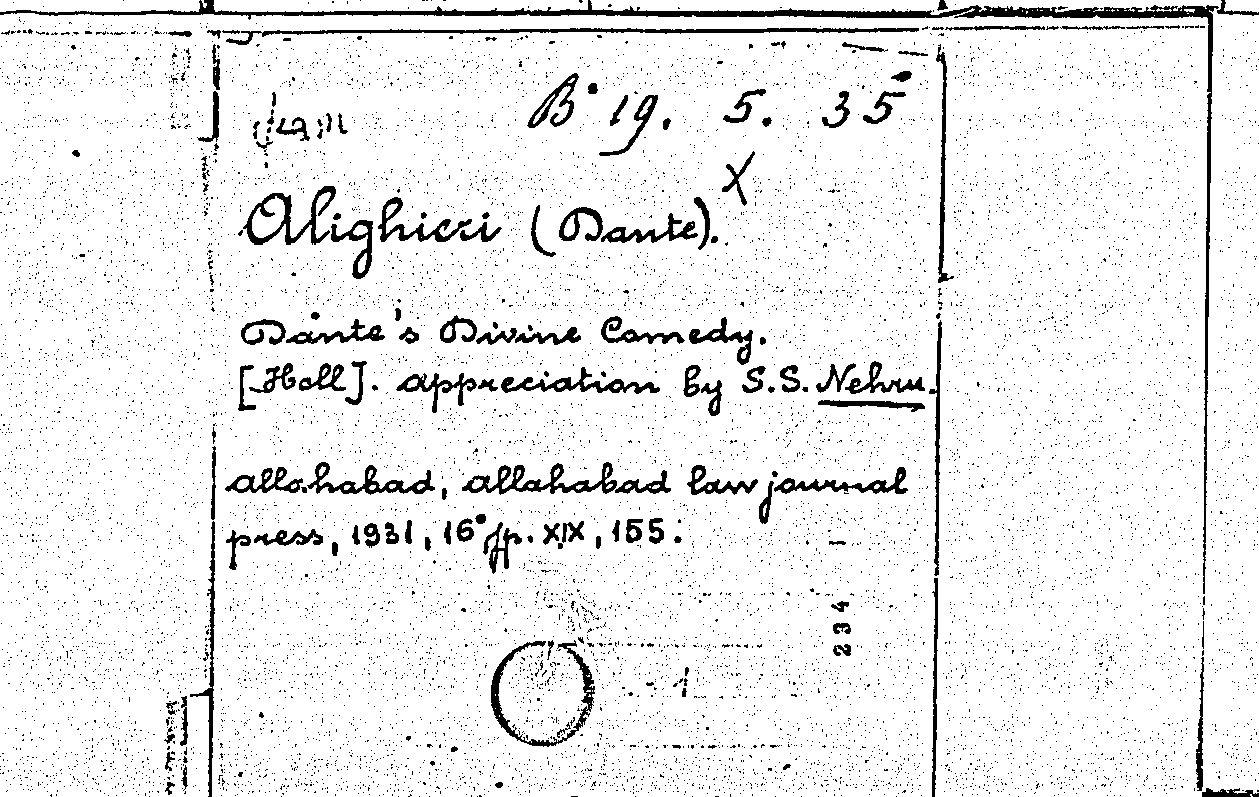 B° 19. 5. 35
X
Alighieri (Dante).
Dante's Divine Comedy.
[Hell]. appreciation by S.S. Nehru.
allahabad, allahabad law journal
press, 1931, 16° pp. XIX, 155.
234
1